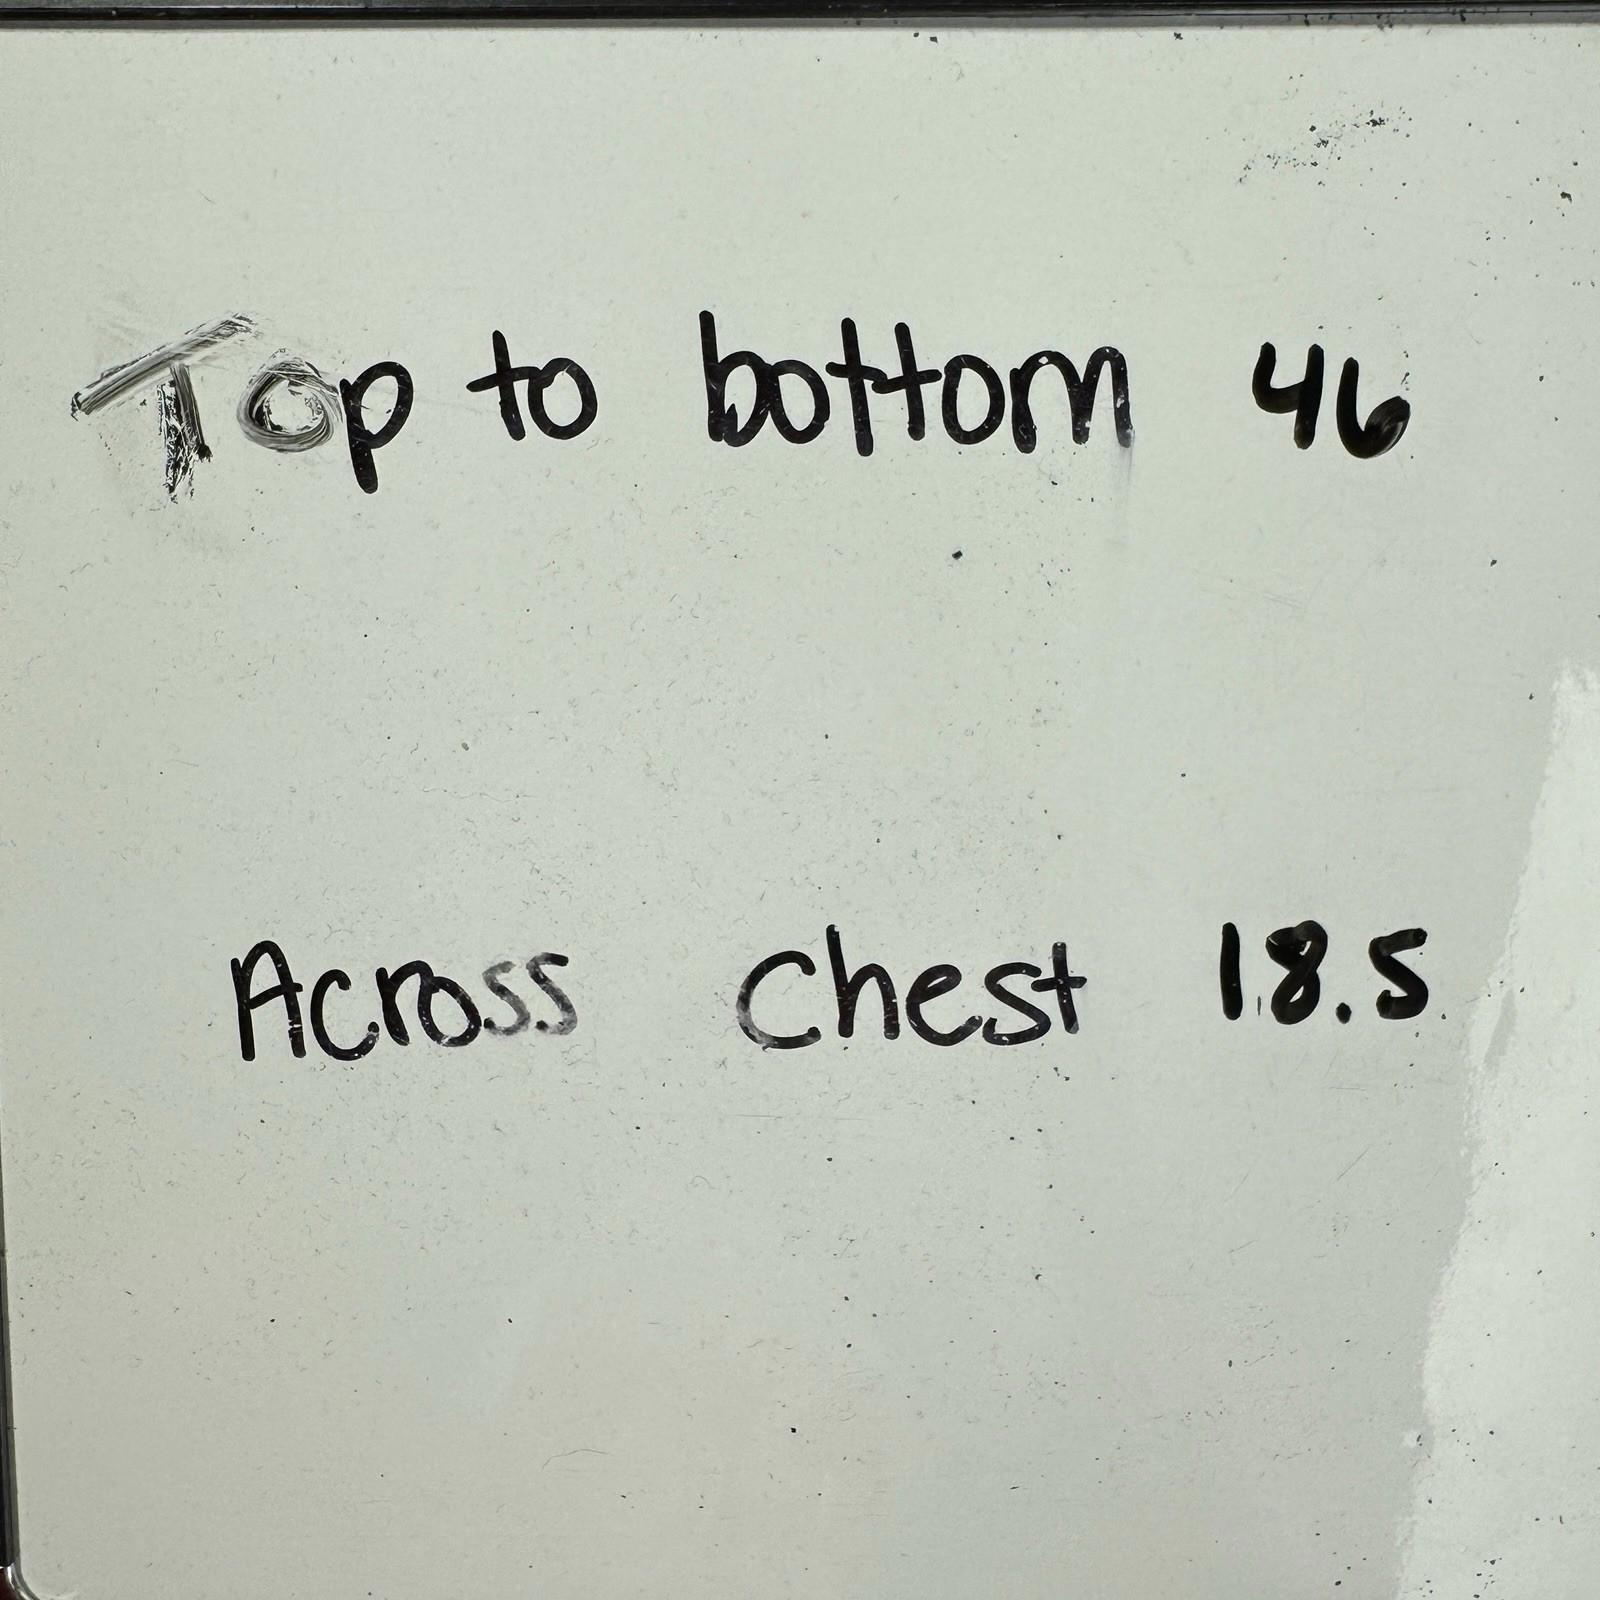 Top to bottom 46
Across Chest 18.5